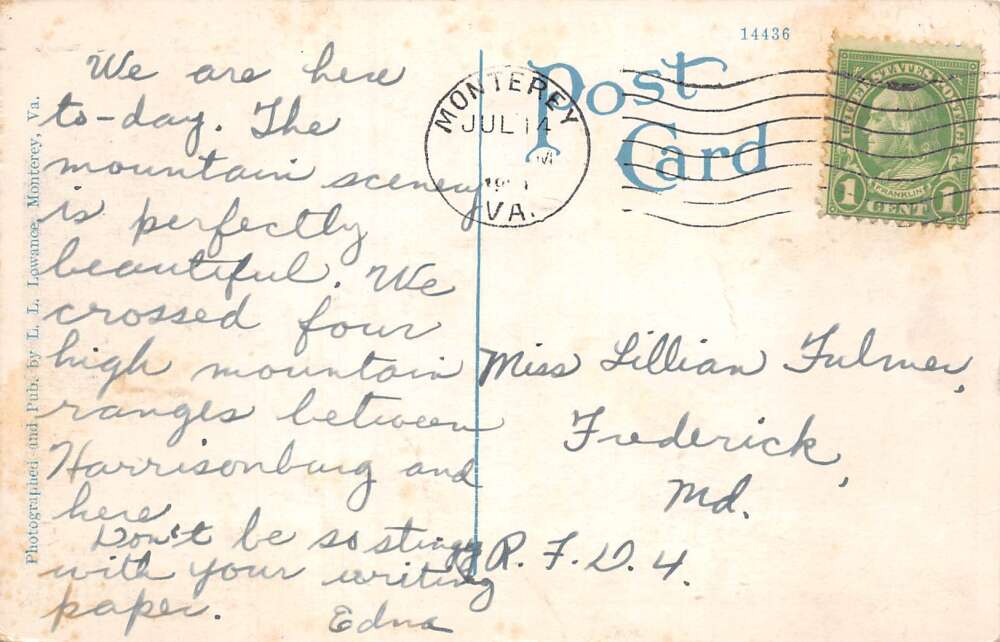 14436
Post
Card
MONTEREY
JUL 14
M
VA.
UNITED STATES POSTAGE
FRANKLIN
1 CENT 1
Photographed and Pub. by L. L. Lowance, Monterey, Va.
We are here
to-day. The
mountain scenery
is perfectly
beautiful. We
crossed four
high mountain
ranges between
Harrisonburg and
here.
Don't be so stingy
with your writing
paper.
Edna
Miss Lillian Fulmer,
Frederick,
Md.
R. F. D. 4.